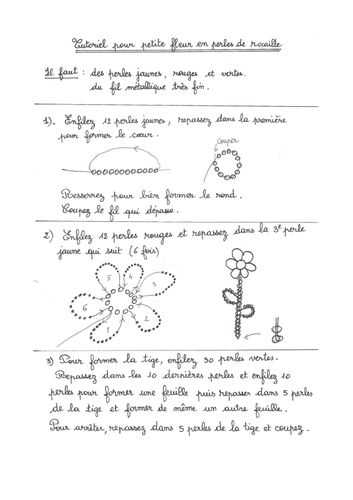 Tutoriel pour petite fleur en perles de rocaille
Il faut : des perles jaunes, rouges et vertes.
du fil métallique très fin.
1)_ Enfilez 12 perles jaunes, repassez dans la première
pour former le cœur.
couper
Resserrez pour bien former le rond.
Coupez le fil qui dépasse.
2) Enfilez 12 perles rouges et repassez dans la 3e perle
jaune qui suit (6 fois)
5
4
3
6
1
2
3) Pour former la tige, enfilez 30 perles vertes.
Repassez dans les 10 dernières perles et enfilez 10
perles pour former une feuille puis repasser dans 5 perles
de la tige et former de même un autre feuille.
Pour arrêter, repassez dans 5 perles de la tige et coupez.